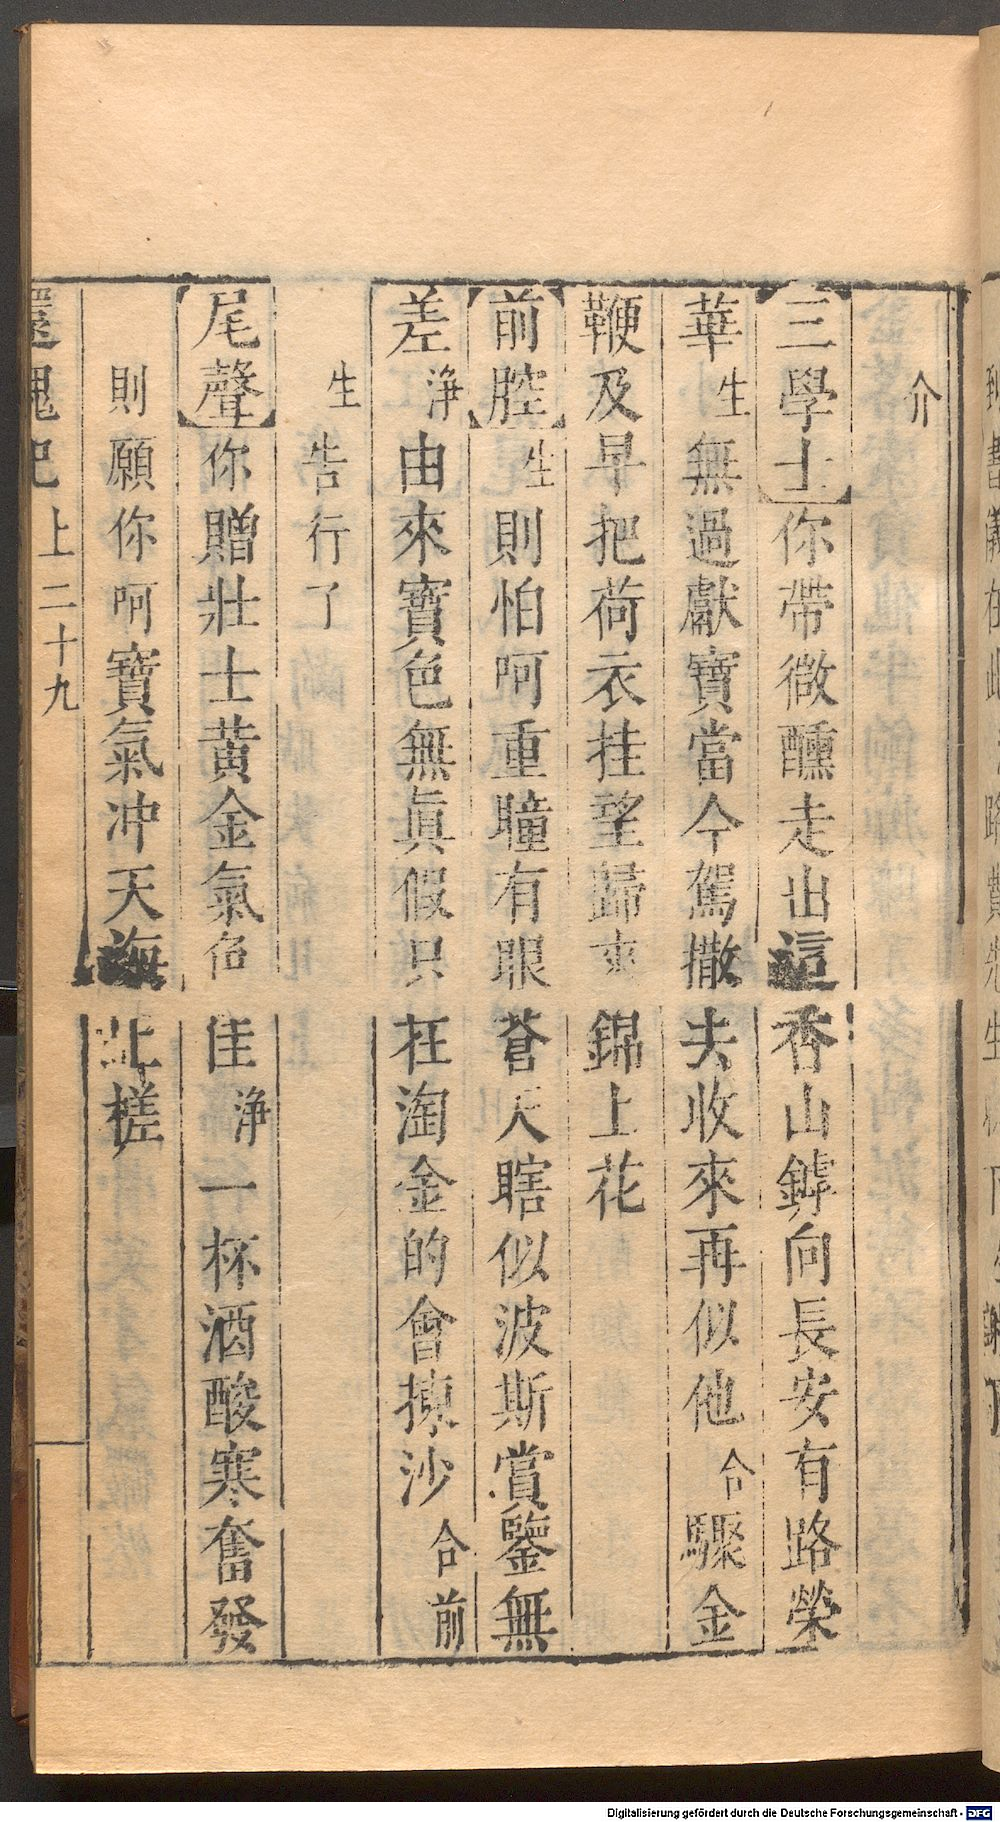 介
三學士你帶微醺走出這香山罅向長安有路榮
華生無過獻寶當今駕撒去收來再似他合驟金
鞭及早把荷衣挂望歸來錦上花
前腔生則怕呵重瞳有眼蒼天瞎似波斯賞鑒無
差淨由來寶色無眞假只在淘金的會揀沙合前
生告行了
尾聲你贈壯士黄金氣色佳淨一杯酒酸寒奮發
則願你呵寶氣冲天海上槎
還魂記上二十九
Digitalisierung gefördert durch die Deutsche Forschungsgemeinschaft - DFG